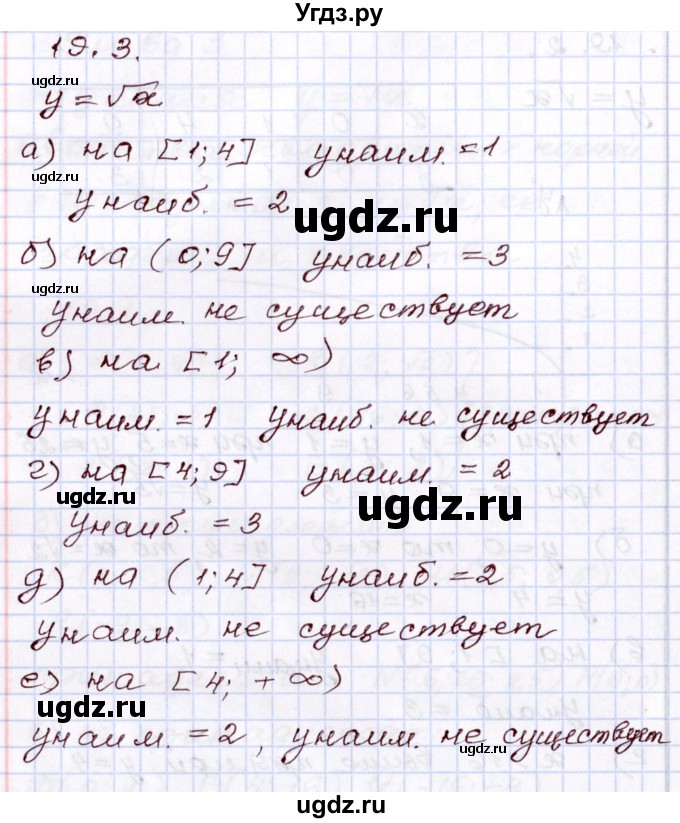 Угдз.ру
19.3.
ugdz.ru
y = √x
а) на [1; 4] y наим. = 1
ugdz.ru
y наиб. = 2
ugdz.ru
б) на (0; 9] y наиб. = 3
ugdz.ru
y наим. не существует
в) на [1; ∞)
y наим. = 1 y наиб. не существует
г) на [4; 9] y наим. = 2
ugdz.ru
ugdz.ru
y наиб. = 3
д) на (1; 4] y наиб. = 2
y наим. не существует
е) на [4; +∞)
ugdz.ru
ugdz.ru
y наим. = 2, y наим. не существует
ugdz.ru
ugdz.ru